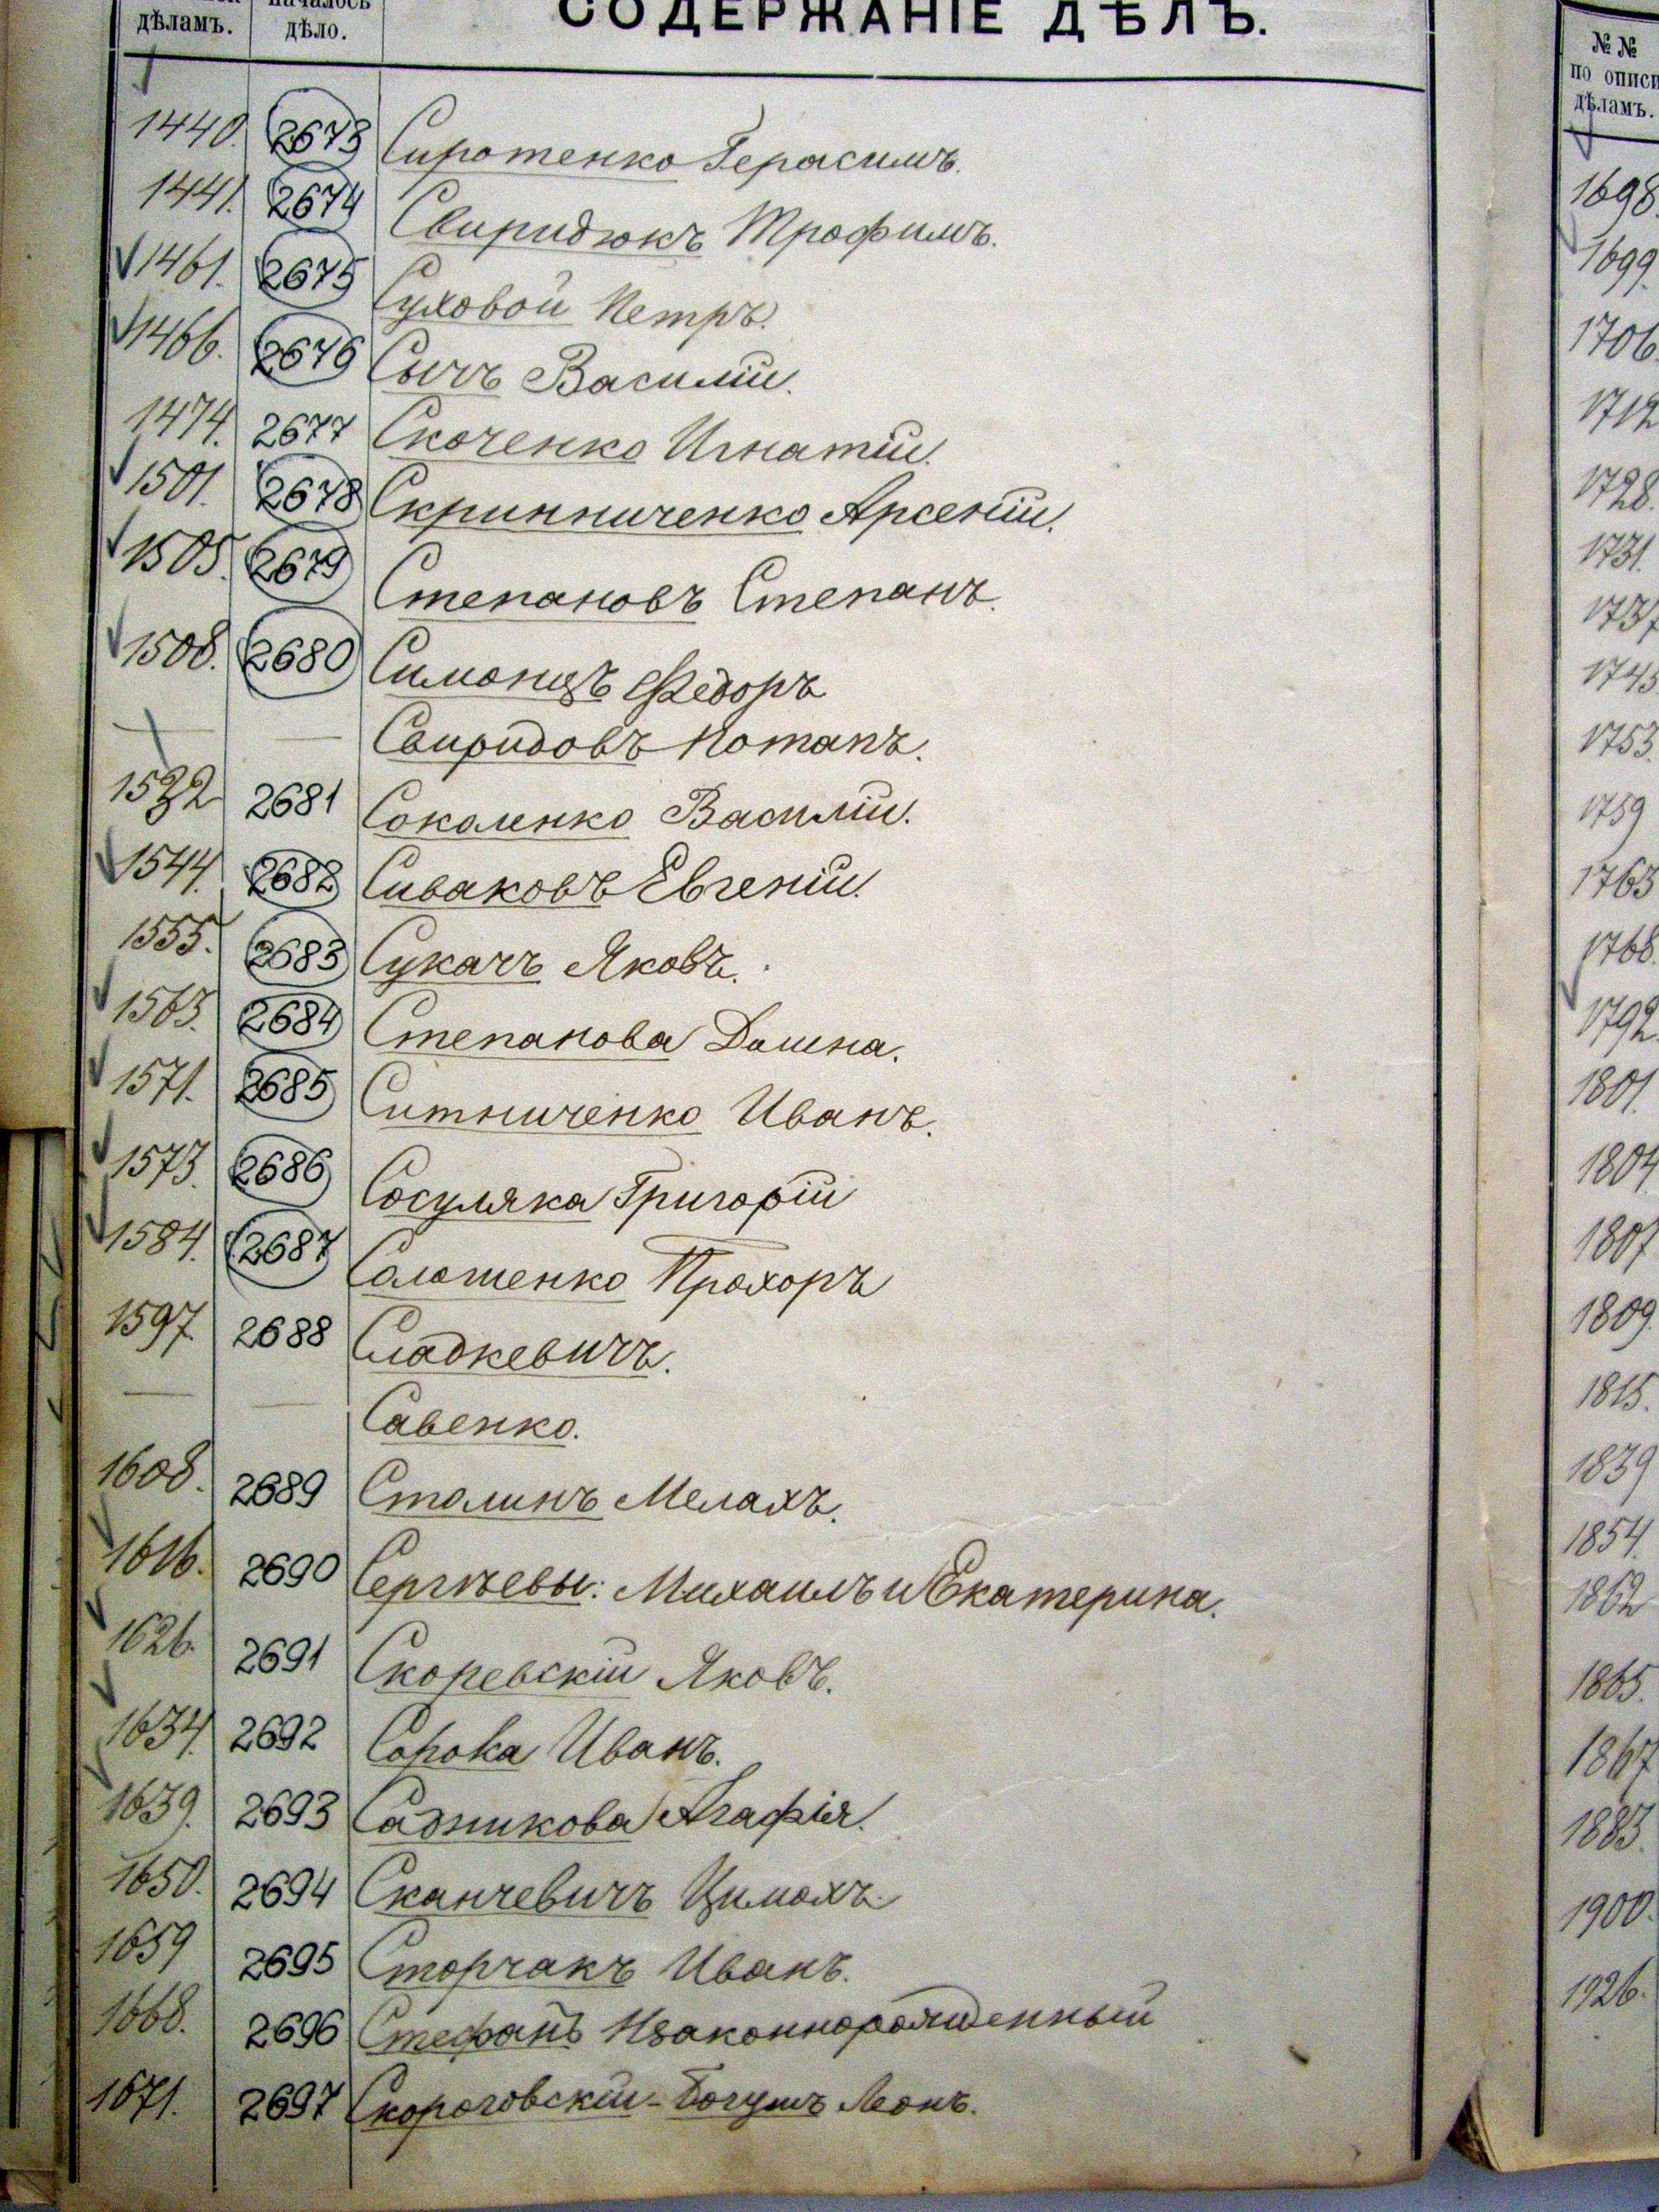 дѣламъ. началось
дѣло. СОДЕРЖАНІЕ ДѢЛЪ.
1440. 2673 Сиротенко Герасимъ.
1441. 2674 Свиридюкъ Трофимъ.
1461. 2675 Суховой Петръ.
1466. 2676 Сычъ Василій.
1474. 2677 Скоченко Игнатій.
1501. 2678 Скринниченко Арсеній.
1505. 2679 Степановъ Степанъ.
1508. 2680 Симонецъ Федоръ
— — Свиридовъ Потапъ.
1532 2681 Соколенко Василій.
1544. 2682 Сиваковъ Евгеній.
1555. 2683 Сукачъ Яковъ.
1563. 2684 Степанова Домна.
1571. 2685 Ситниченко Иванъ.
1573. 2686 Сосуляка Григорій
1584. 2687 Солошенко Прохоръ
1597. 2688 Сладкевичъ.
— — Савенко.
1608. 2689 Столинъ Мелахъ.
1616. 2690 Сергѣевы: Михаилъ и Екатерина.
1626. 2691 Скоревскій Яковъ.
1634. 2692 Сорока Иванъ.
1639. 2693 Садникова Агафія.
1650. 2694 Сканчевичъ
1659 2695 Сторчакъ Иванъ.
1668. 2696 Стефанъ Нзаконнорожденный
1671. 2697 Скороговскій-Богушъ Леонъ.
№ №
по описи
дѣламъ.
1698.
1699.
1706.
1712
1728.
1731.
1737
1745
1753.
1759
1763
1768.
1792.
1801.
1804
1807
1809.
1815.
1839
1854.
1862
1865.
1867
1883.
1900.
1926.